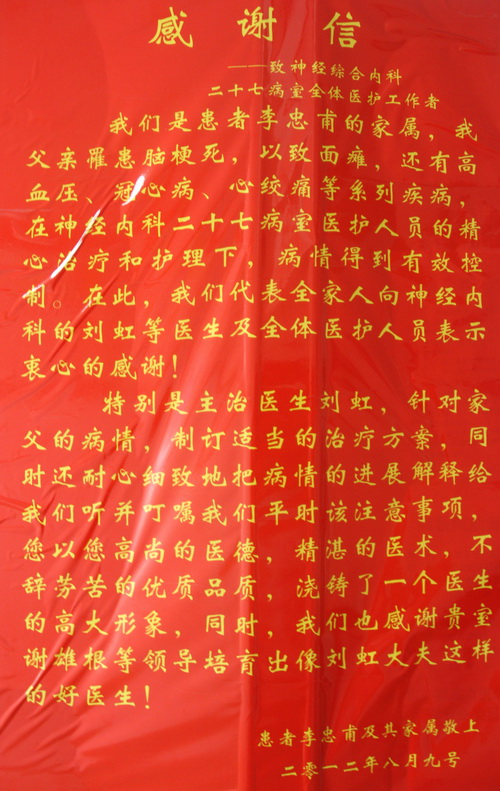 感谢信
——致神经综合内科
二十七病室全体医护工作者
我们是患者李忠甫的家属，我
父亲罹患脑梗死，以致面瘫，还有高
血压、冠心病、心绞痛等系列疾病，
在神经内科二十七病室医护人员的精
心治疗和护理下，病情得到有效控
制。在此，我们代表全家人向神经内
科的刘虹等医生及全体医护人员表示
衷心的感谢！
特别是主治医生刘虹，针对家
父的病情，制订适当的治疗方案，同
时还耐心细致地把病情的进展解释给
我们听并叮嘱我们平时该注意事项，
您以您高尚的医德，精湛的医术，不
辞劳苦的优质品质，浇铸了一个医生
的高大形象，同时，我们也感谢贵室
谢雄根等领导培育出像刘虹大夫这样
的好医生！
患者李忠甫及其家属敬上
二零一二年八月九号